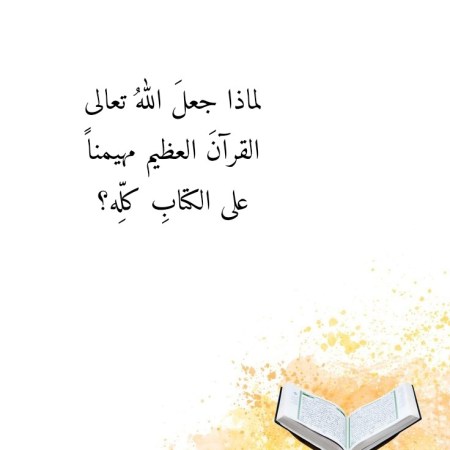 لماذا جعلَ اللهُ تعالى
القرآنَ العظيم مهيمناً
على الكتابِ كلِّه؟